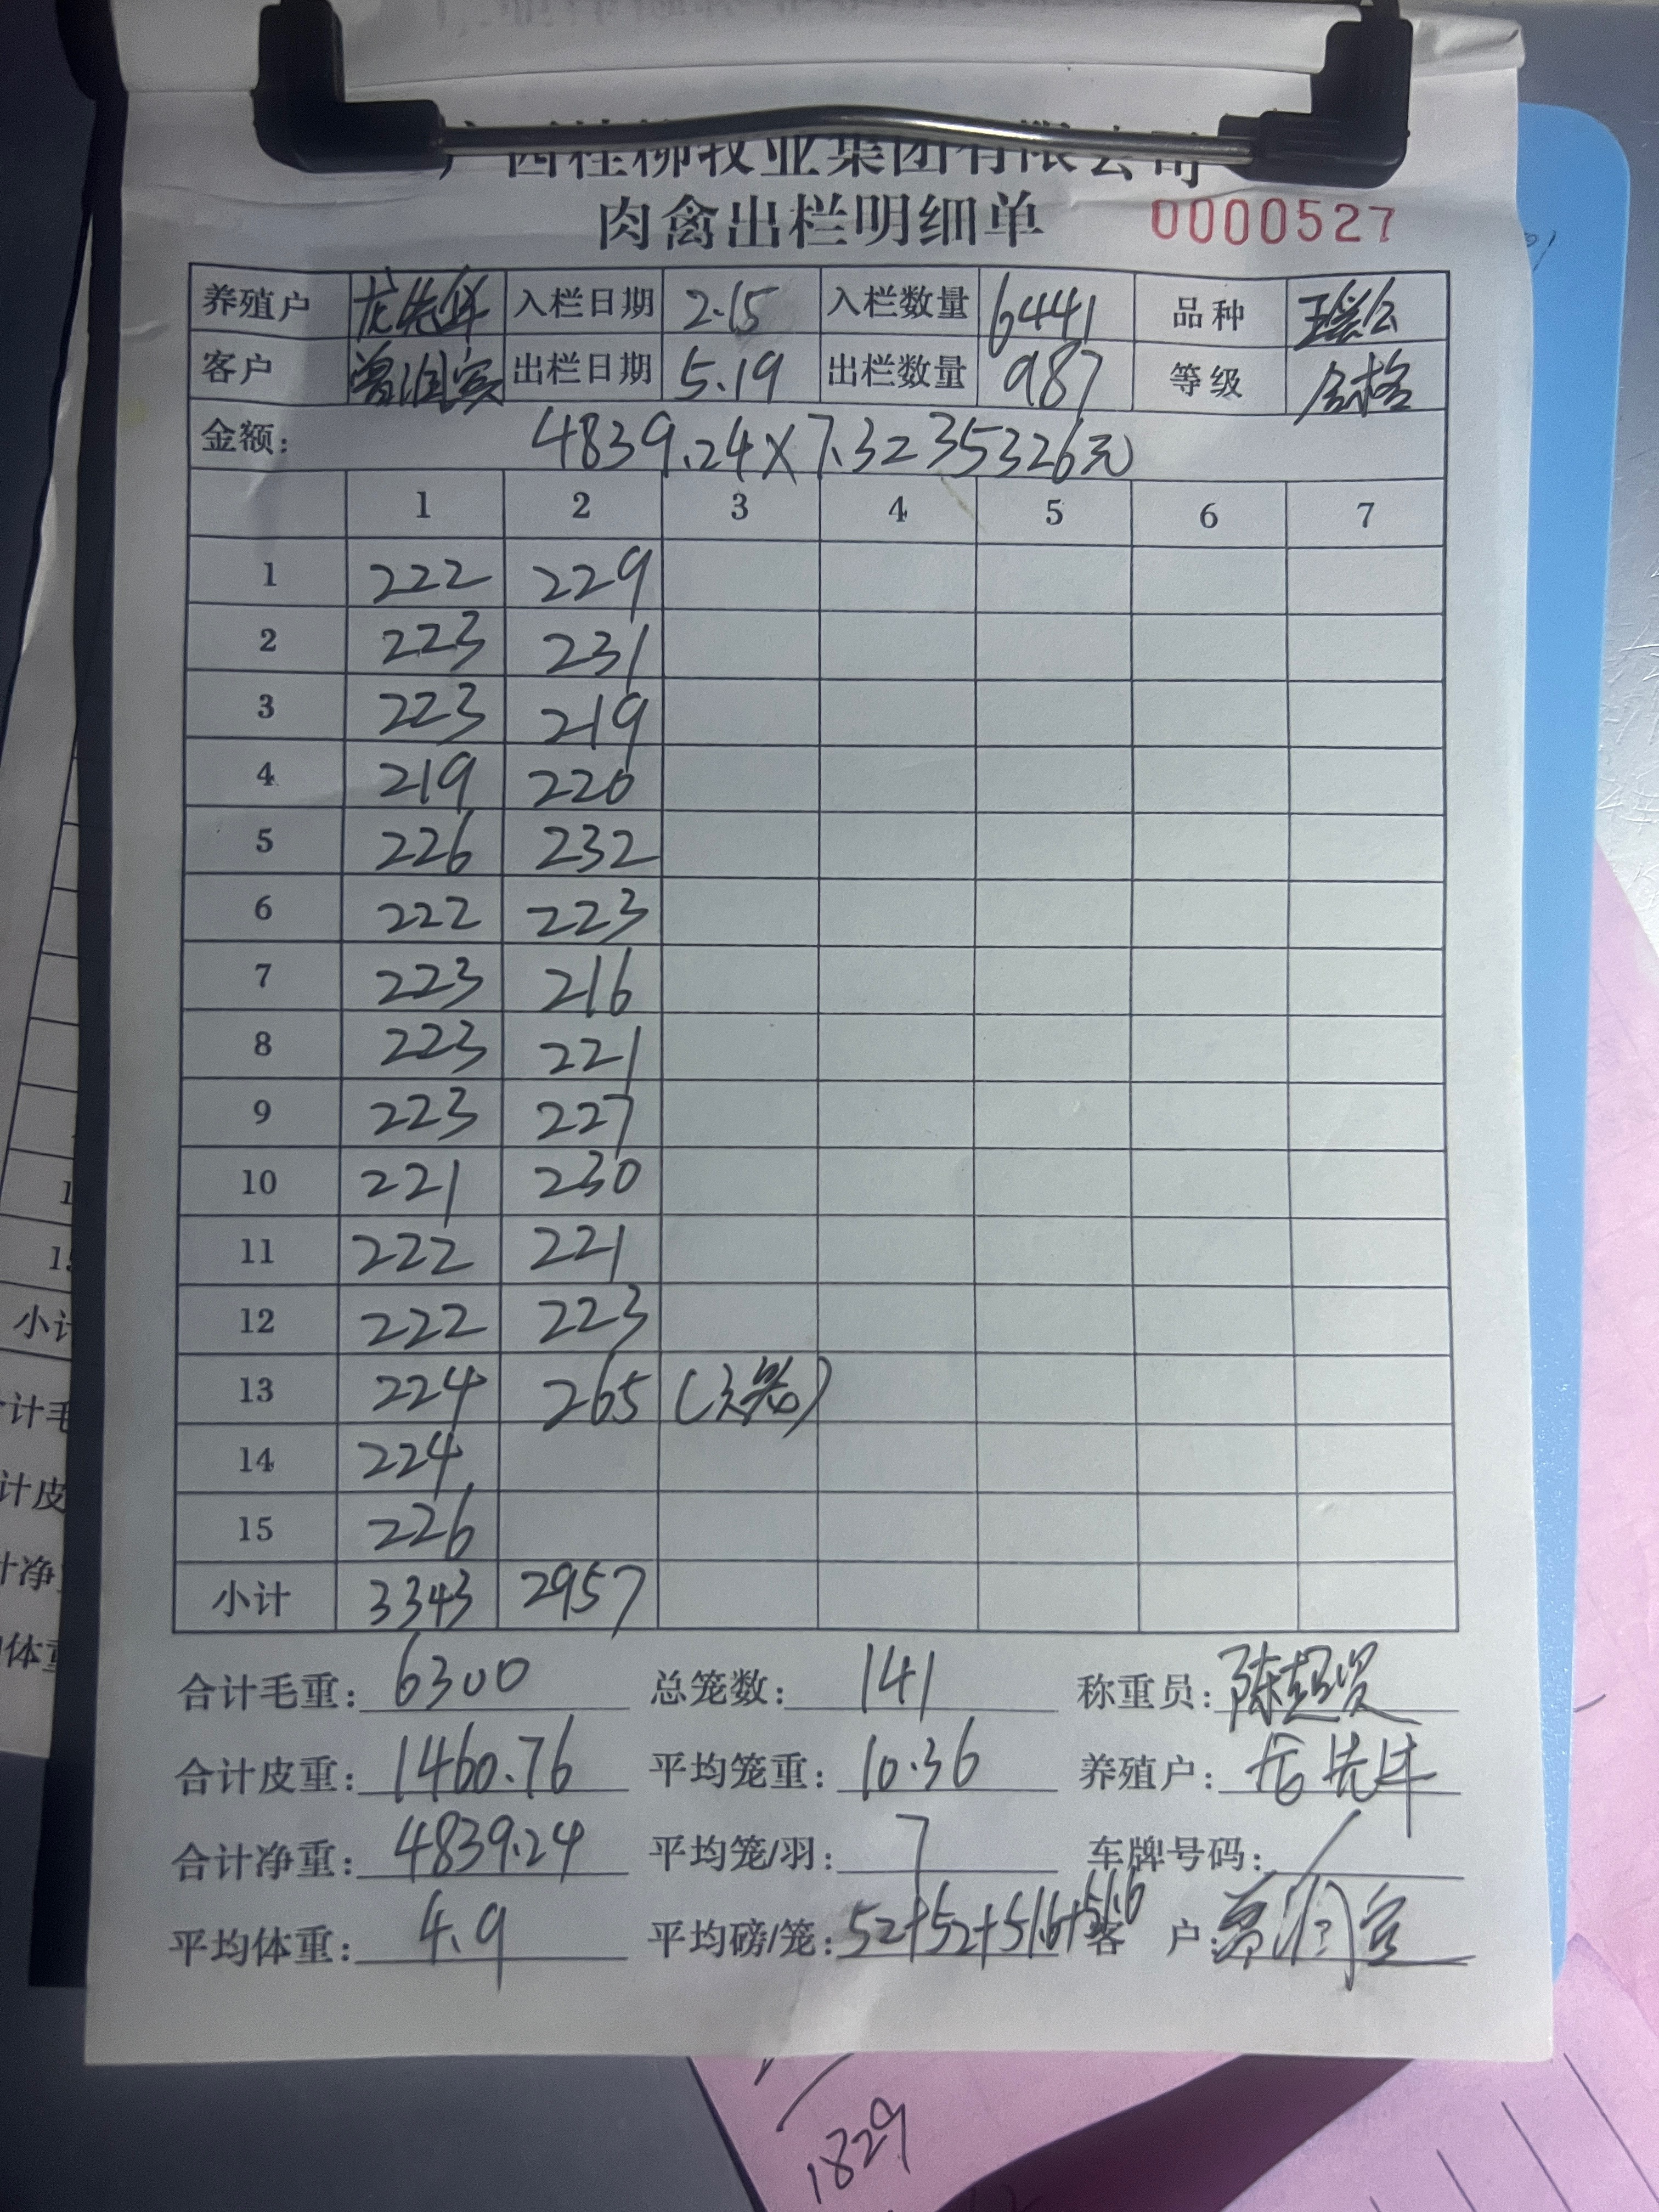 广西桂柳牧业集团有限公司
肉禽出栏明细单 0000527
养殖户 龙先华 入栏日期 2.15 入栏数量 6441 品种 瑶公
客户 曾润宾 出栏日期 5.19 出栏数量 987 等级 合格
金额: 4839.24×7.3=35326元
1 2 3 4 5 6 7
1 222 229
2 223 231
3 223 219
4 219 220
5 226 232
6 222 223
7 223 216
8 223 221
9 223 227
10 221 230
11 222 221
12 222 223
13 224 265 (6笼)
14 224
15 226
小计 3343 2957
合计毛重: 6300 总笼数: 141 称重员:
合计皮重: 1460.76 平均笼重: 10.36 养殖户:
合计净重: 4839.24 平均笼/羽: 7 车牌号码: /
平均体重: 4.9 平均磅/笼: 52+52+51.6+51.6 客 户:
1829